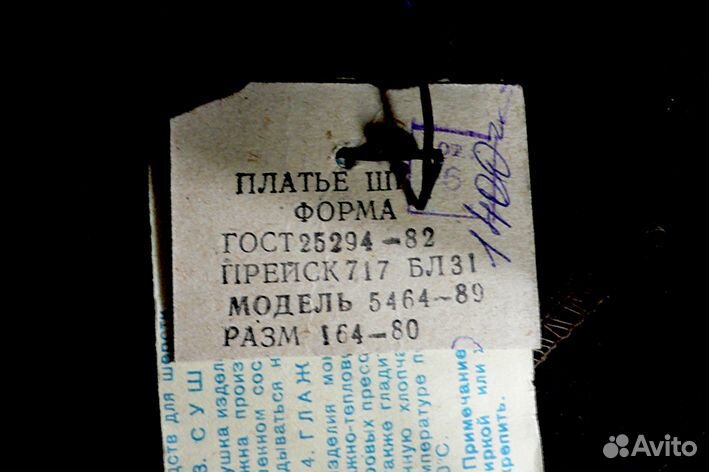 ПЛАТЬЕ
ФОРМА
ГОСТ 25294-82
ПРЕЙСК 717 БЛ31
МОДЕЛЬ 5464-89
РАЗМ 164-80
1400
дств для шерсти
3. СУШ
ушка издел
жна произ
енном сос
дываться н
4. ГЛАЖ
зделия мо
жно-теплов
ровых пресс
акже глади
чную хлопча
мпературе п
0°С.
Примечание
яркой или
репить.
Avito